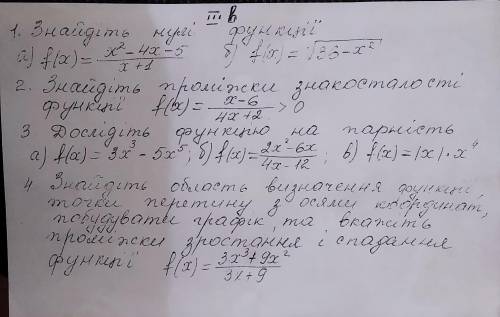 III в
1. Знайдіть нулі функції
а) f(x) = (x² - 4x - 5)/(x + 1) б) f(x) = √(33 - x²)
2. Знайдіть проміжки знакосталості
функції f(x) = (x - 6)/(4x + 2) > 0
3 Дослідіть функцію на парність
а) f(x) = 3x³ - 5x⁵; б) f(x) = (2x² - 6x)/(4x - 12); в) f(x) = |x| · x⁴
4 Знайдіть область визначення функції,
точки перетину з осями координат,
побудувати графік, та вкажіть
проміжки зростання і спадання
функції f(x) = (3x³ + 9x²)/(3x + 9)